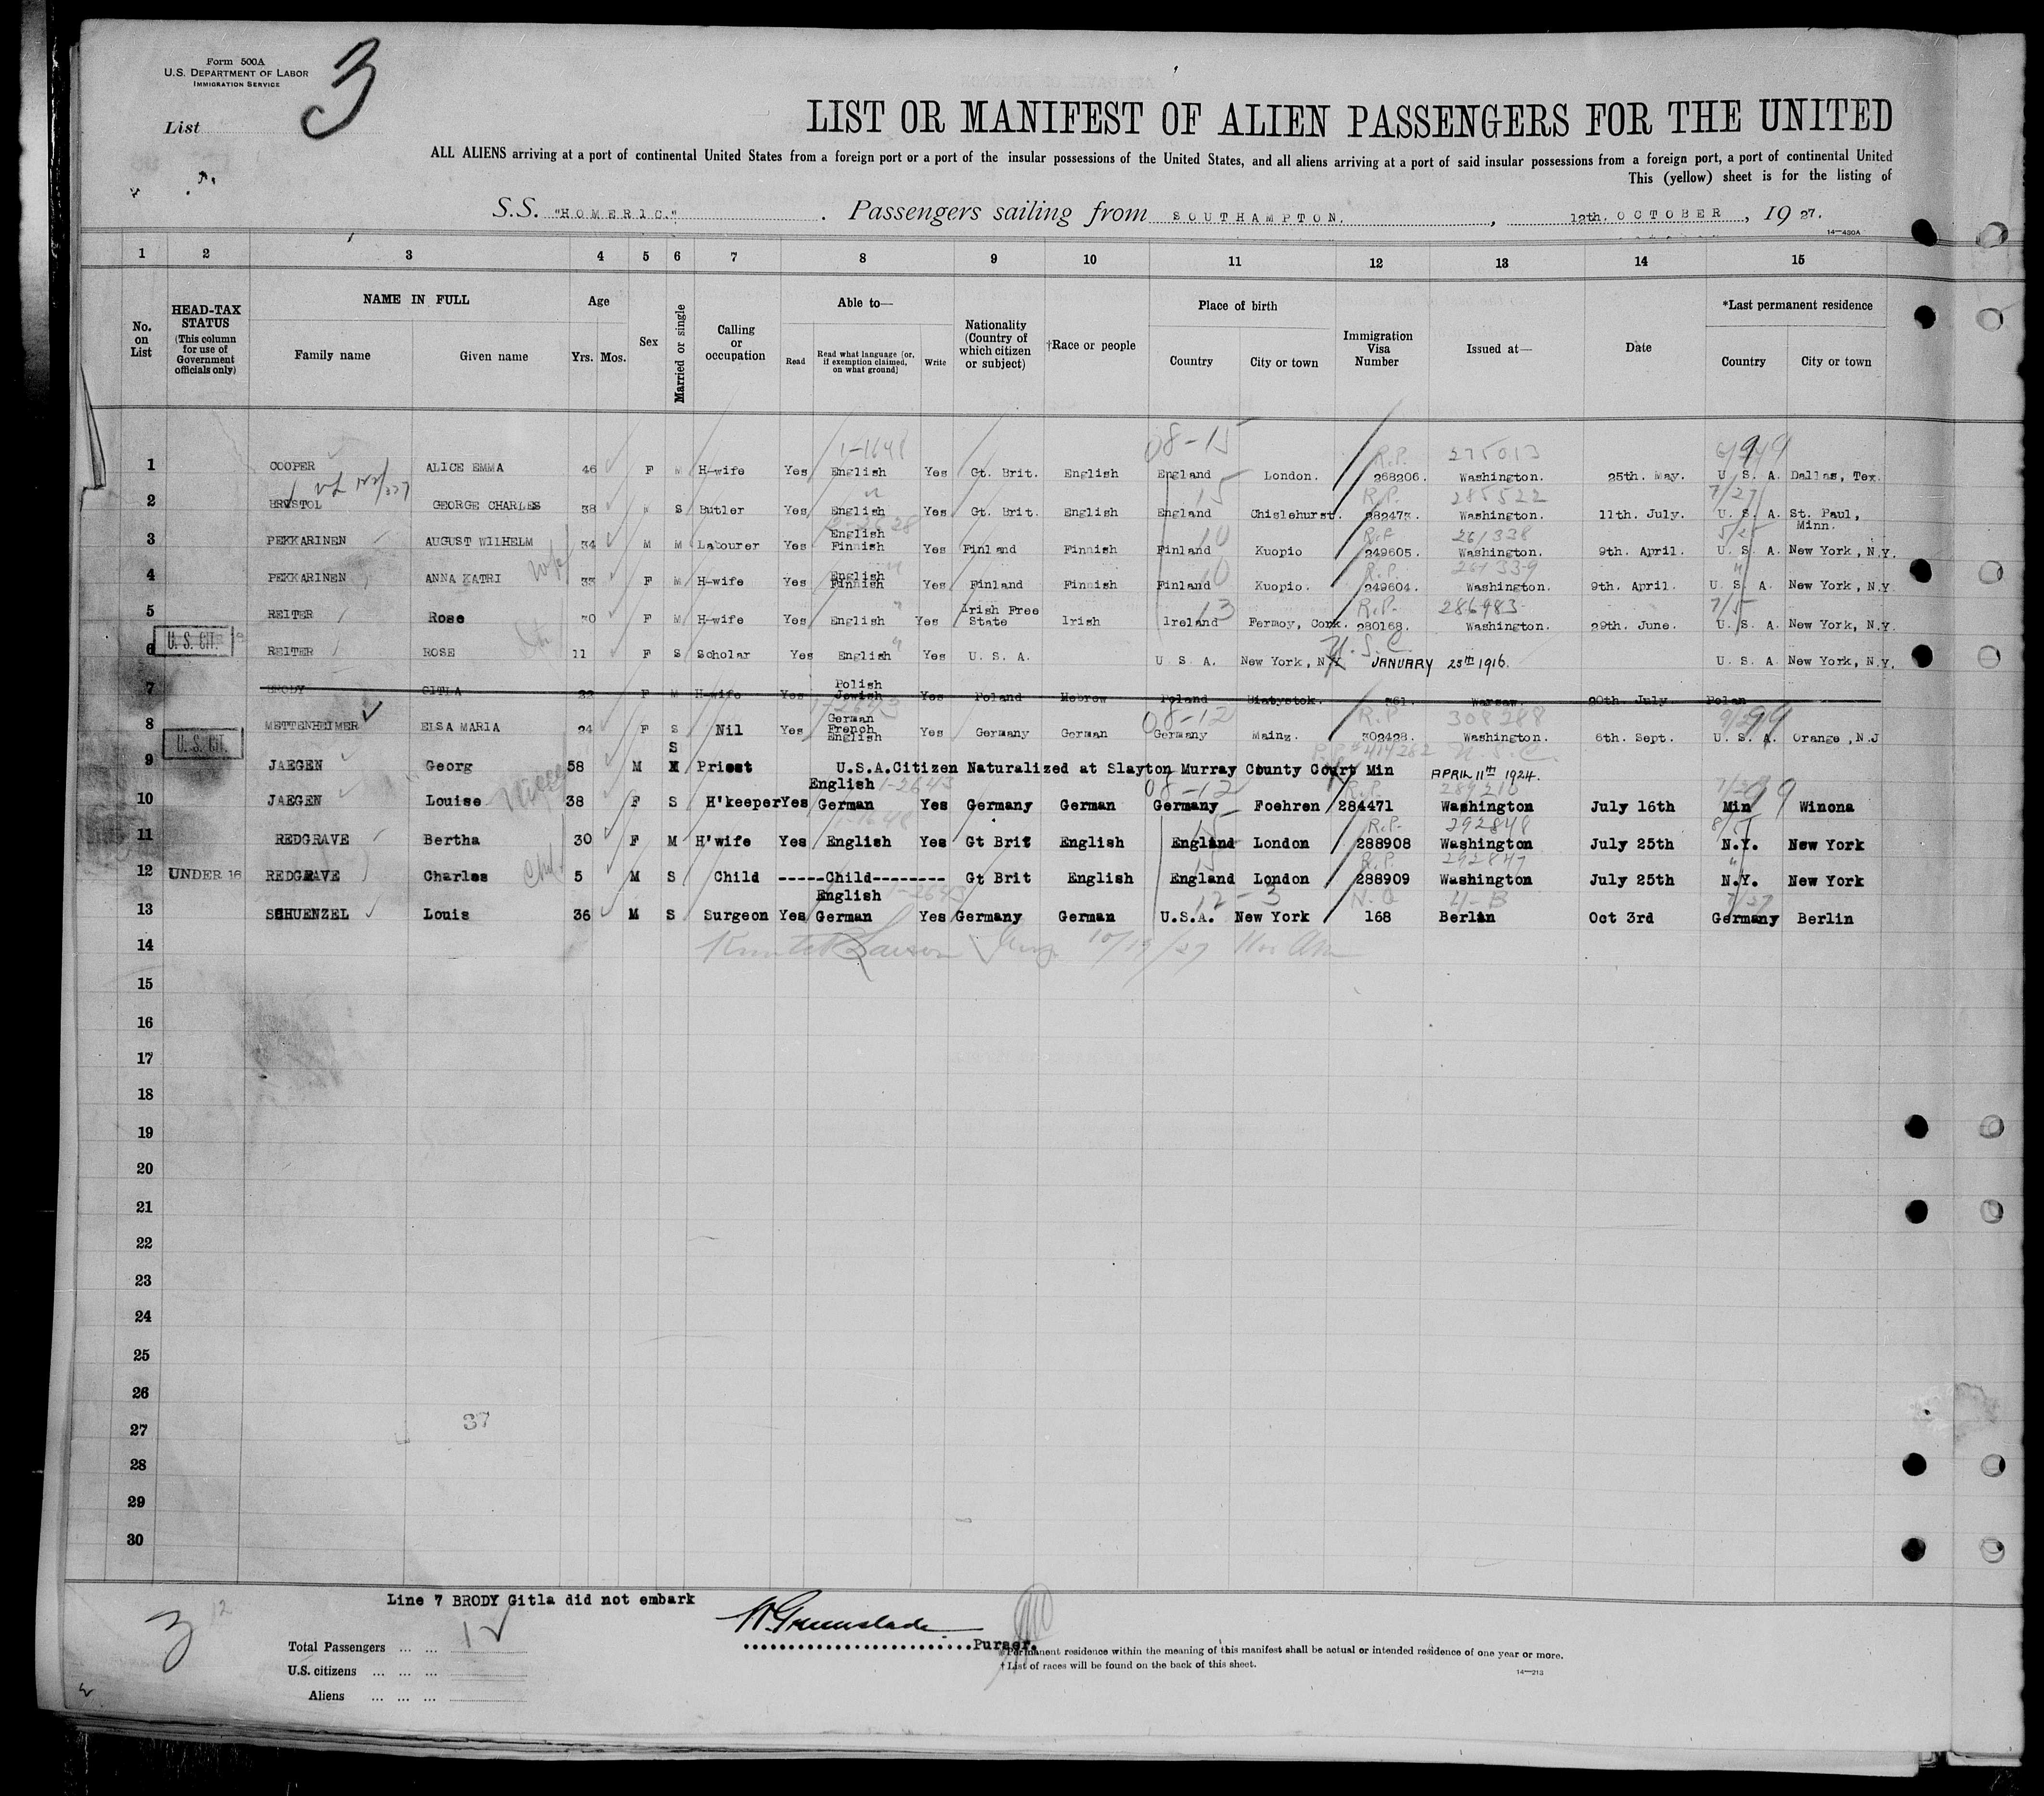 Form 500A
U.S. DEPARTMENT OF LABOR
IMMIGRATION SERVICE
3
List
LIST OR MANIFEST OF ALIEN PASSENGERS FOR THE UNITED
ALL ALIENS arriving at a port of continental United States from a foreign port or a port of the insular possessions of the United States, and all aliens arriving at a port of said insular possessions from a foreign port, a port of continental United
This (yellow) sheet is for the listing of
S.S. "HOMERIC." Passengers sailing from SOUTHAMPTON, 12th. OCTOBER, 1927.
14—430A
1 2 3 4 5 6 7 8 9 10 11 12 13 14 15
No. on List
HEAD-TAX STATUS (This column for use of Government officials only)
NAME IN FULL Family name Given name
Age Yrs. Mos.
Sex
Married or single
Calling or occupation
Able to— Read Read what language [or, if exemption claimed, on what ground] Write
Nationality (Country of which citizen or subject)
†Race or people
Place of birth Country City or town
Immigration Visa Number
Issued at—
Date
*Last permanent residence Country City or town
1-1648 08-15 R.P. 275013
1 COOPER ALICE EMMA 46 F M H-wife Yes English Yes Gt. Brit. English England London. 268206. Washington. 25th. May. U. S. A. Dallas, Tex.
15 R.P. 285522 7/27
2 BRYSTOL GEORGE CHARLES 38 M S Butler Yes English Yes Gt. Brit. English England Chislehurst. 282473. Washington. 11th. July. U. S. A. St. Paul, Minn.
10 R.P. 261338 5/25
3 PEKKARINEN AUGUST WILHELM 34 M M Labourer Yes English Finnish Yes Finland Finnish Finland Kuopio 249605. Washington. 9th. April. U. S. A. New York, N.Y.
10 R.P. 261339
4 PEKKARINEN ANNA KATRI 33 F M H-wife Yes English Finnish Yes Finland Finnish Finland Kuopio. 249604. Washington. 9th. April. U. S. A. New York, N.Y
13 R.P. 286983
5 REITER Rose 30 F M H-wife Yes English Yes Irish Free State Irish Ireland Fermoy, Cork. 280168. Washington. 29th. June. U. S. A. New York, N.Y.
U. S. CIT. U.S.C.
6 REITER ROSE 11 F S Scholar Yes English Yes U. S. A. U S A. New York, N.Y JANUARY 25th 1916. U. S. A. New York, N.Y.
7 BRODY GITLA 22 F M H-wife Yes Polish Jewish Yes Poland Hebrew Poland Biatystok. 361. Warsaw. 20th. July. Polan
1-2643 08-12 R.P 308288
8 METTENHEIMER ELSA MARIA 24 F S Nil Yes German French English Yes Germany German Germany Mainz. 302428. Washington. 6th. Sept. U. S. A. Orange, N.J
U. S. CIT. U.S.C.
9 JAEGEN Georg 58 M S Priest U.S.A.Citizen Naturalized at Slayton Murray County Court Min APRIL 11th 1924.
1-2643 08-12 R.P. 289210
10 JAEGEN Louise 38 F S H'keeper Yes English German Yes Germany German Germany Foehren 284471 Washington July 16th Min Winona
1-1648 15 R.P. 292848
11 REDGRAVE Bertha 30 F M H'wife Yes English Yes Gt Brit English England London 288908 Washington July 25th N.Y. New York
15 R.P. 292847
12 UNDER 16 REDGRAVE Charles 5 M S Child -----Child-------- Gt Brit English England London 288909 Washington July 25th N.Y. New York
1-2643 12-3 N.Q 4-B
13 SCHUENZEL Louis 36 M S Surgeon Yes English German Yes Germany German U.S.A. New York 168 Berlin Oct 3rd Germany Berlin
14 10/19/27
15
16
17
18
19
20
21
22
23
24
25
26
27 37
28
29
30
Line 7 BRODY Gitla did not embark
3 12
Total Passengers ... ... 12
U.S. citizens ... ... ...
Aliens ... ... ...
Purser.
*Permanent residence within the meaning of this manifest shall be actual or intended residence of one year or more.
† List of races will be found on the back of this sheet.
14—213